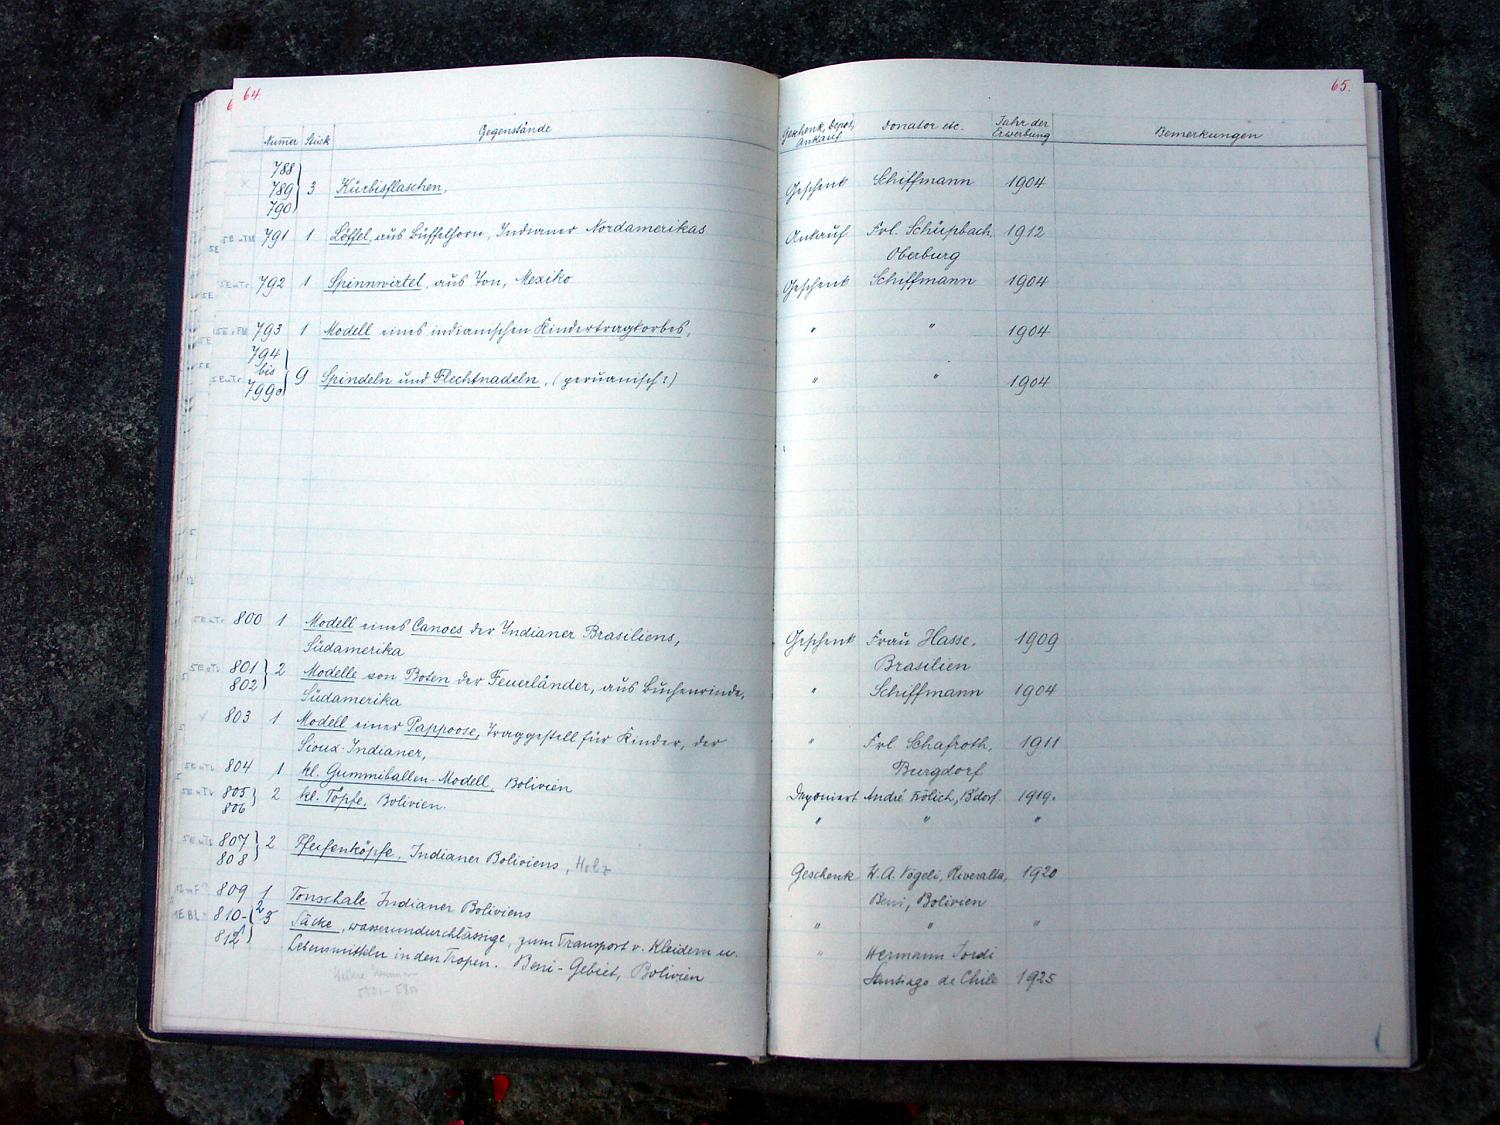 64.
Numer Stück Gegenstände
788
789 3 Kürbisflaschen,
790
791 1 Löffel, aus Büffelhorn, Indianer Nordamerikas
792 1 Spinnwirtel, aus Ton, Mexiko
793 1 Modell eines indianischen Kindertragkorbes,
794
bis 9 Spindeln und Flechtnadeln, (peruanisch?)
799
800 1 Modell eines Canoes der Indianer Brasiliens,
Südamerika
801 2 Modelle von Boten der Feuerländer, aus Buchenrinde,
802 Südamerika
803 1 Modell einer Pappoose, Traggestell für Kinder, der
Sioux-Indianer,
804 1 kl. Gummiballen-Modell, Bolivien
805 2 kl. Töpfe, Bolivien.
806
807 2 Pfeifenköpfe, Indianer Boliviens, Holz
808
809 1 Tonschale Indianer Boliviens
810- Säcke, wasserundurchlässige, zum Transport v. Kleidern u.
Lebensmitteln in den Tropen. Beni-Gebiet, Bolivien
65.
Geschenk, Depot, Ankauf Donator etc. Jahr der Erwerbung Bemerkungen
Geschenk Schiffmann 1904
Ankauf Frl. Schüpbach 1912
Oberburg
Geschenk Schiffmann 1904
" " 1904
" " 1904
Geschenk Frau Hasse, 1909
Brasilien
" Schiffmann 1904
" Frl. Schafroth, 1911
Burgdorf
Deponiert André B'dorf 1919.
" " "
Geschenk W.A. Vögeli, Riveralta, 1920
Beni, Bolivien
" " "
" Hermann Jordi
Santiago de Chile 1925